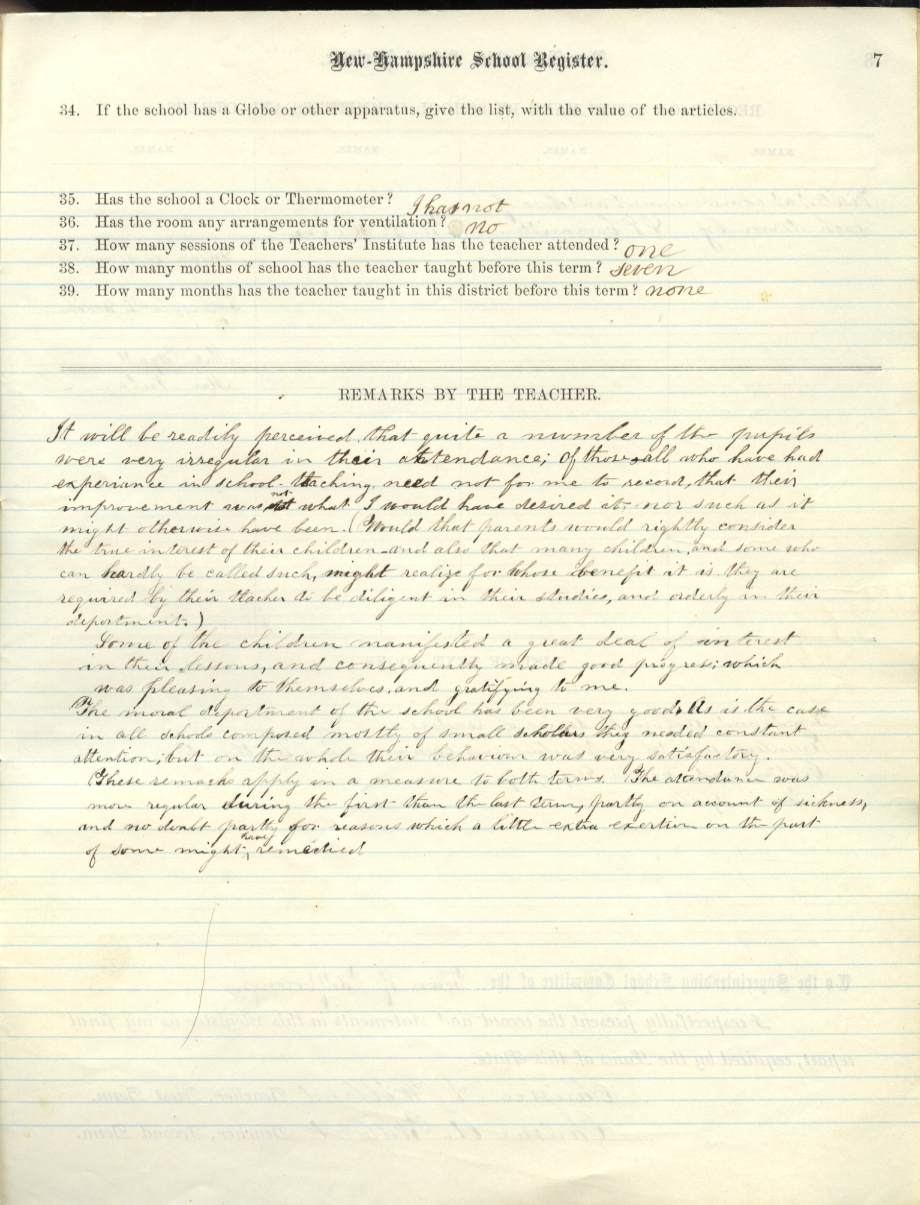 New-Hampshire School Register.
7
34. If the school has a Globe or other apparatus, give the list, with the value of the articles.
35. Has the school a Clock or Thermometer? I has not
36. Has the room any arrangements for ventilation? no
37. How many sessions of the Teachers' Institute has the teacher attended? one
38. How many months of school has the teacher taught before this term? seven
39. How many months has the teacher taught in this district before this term? none
REMARKS BY THE TEACHER.
It will be readily perceived, that quite a number of the pupils
were very irregular in their attendance; Of those all who have had
experiance in school-teaching, need not for me to record, that their
improvement was not what I would have desired it, nor such as it
might otherwise have been. (Would that parents would rightly consider
the true interest of their children and also that many children, and some who
can hardly be called such, might realize for whose benefit it is they are
required by their teacher to be diligent in their studies, and orderly in their
department.)
Some of the children manifested a great deal of interest
in their lessons, and consequently made good progress; which
was pleasing to themselves, and gratifying to me.
The moral department of the school has been very good. As is the case
in all schools composed mostly of small scholars they needed constant
attention; but on the whole their behaviour was very satisfactory.
These remacks apply in a measure to both terms. The attendance was
more regular during the first than the last term, partly on account of sickness,
and no doubt partly for reasons which a little extra exertion on the part
of some might have remedied